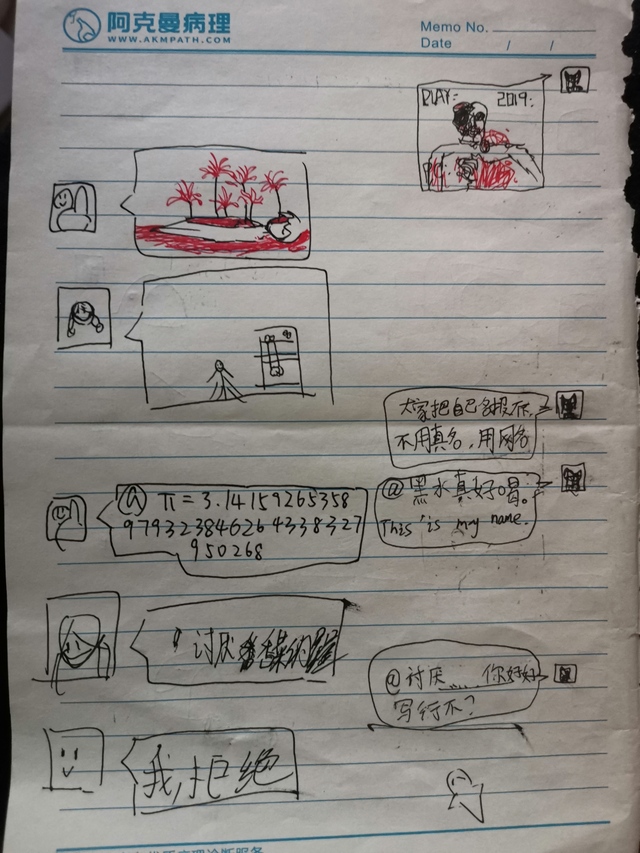 阿克曼病理
WWW.AKMPATH.COM
Memo No.
Date / /
PLAY: 2019.
大家把自己名报一下,
不用真名,用网名
@黑水真好喝。
This is my name.
@ π = 3.14159265358
979323846264338327
950268
讨厌
@讨厌......你好好
写行不?
我,拒绝